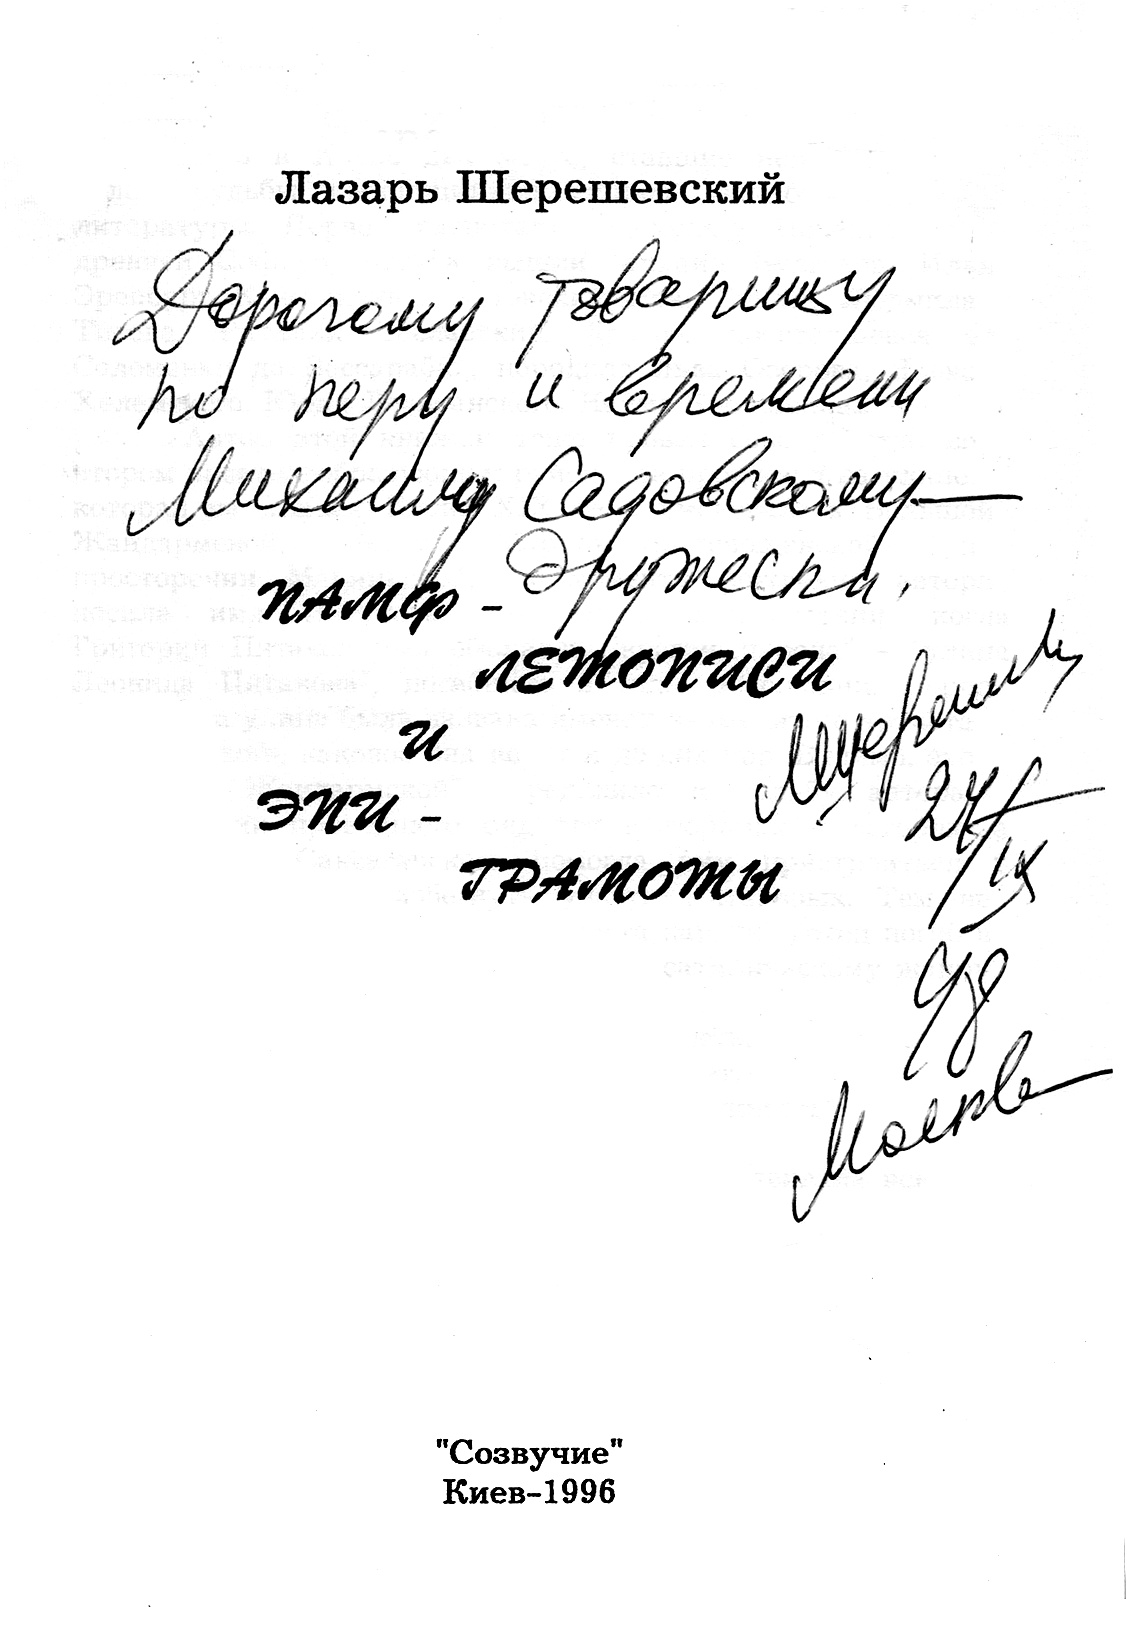 Лазарь Шерешевский
Дорогому товарищу
по перу и времени
Михаилу Садовскому —
Дружески.
ПАМФ -
ЛЕТОПИСИ
И
ЭПИ -
ГРАМОТЫ
24/IX
98
Москва
"Созвучие"
Киев-1996